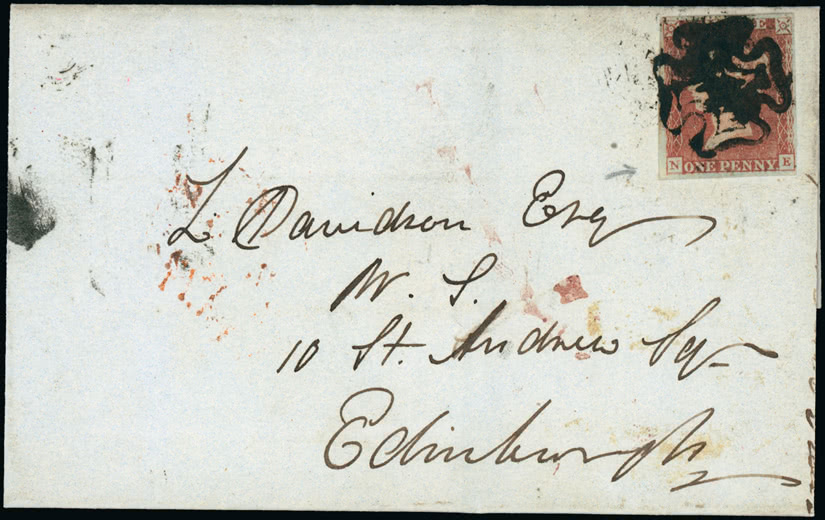 N ONE PENNY E
L. Davidson Esq
W. S.
10 St. Andrew Sq
Edinburgh